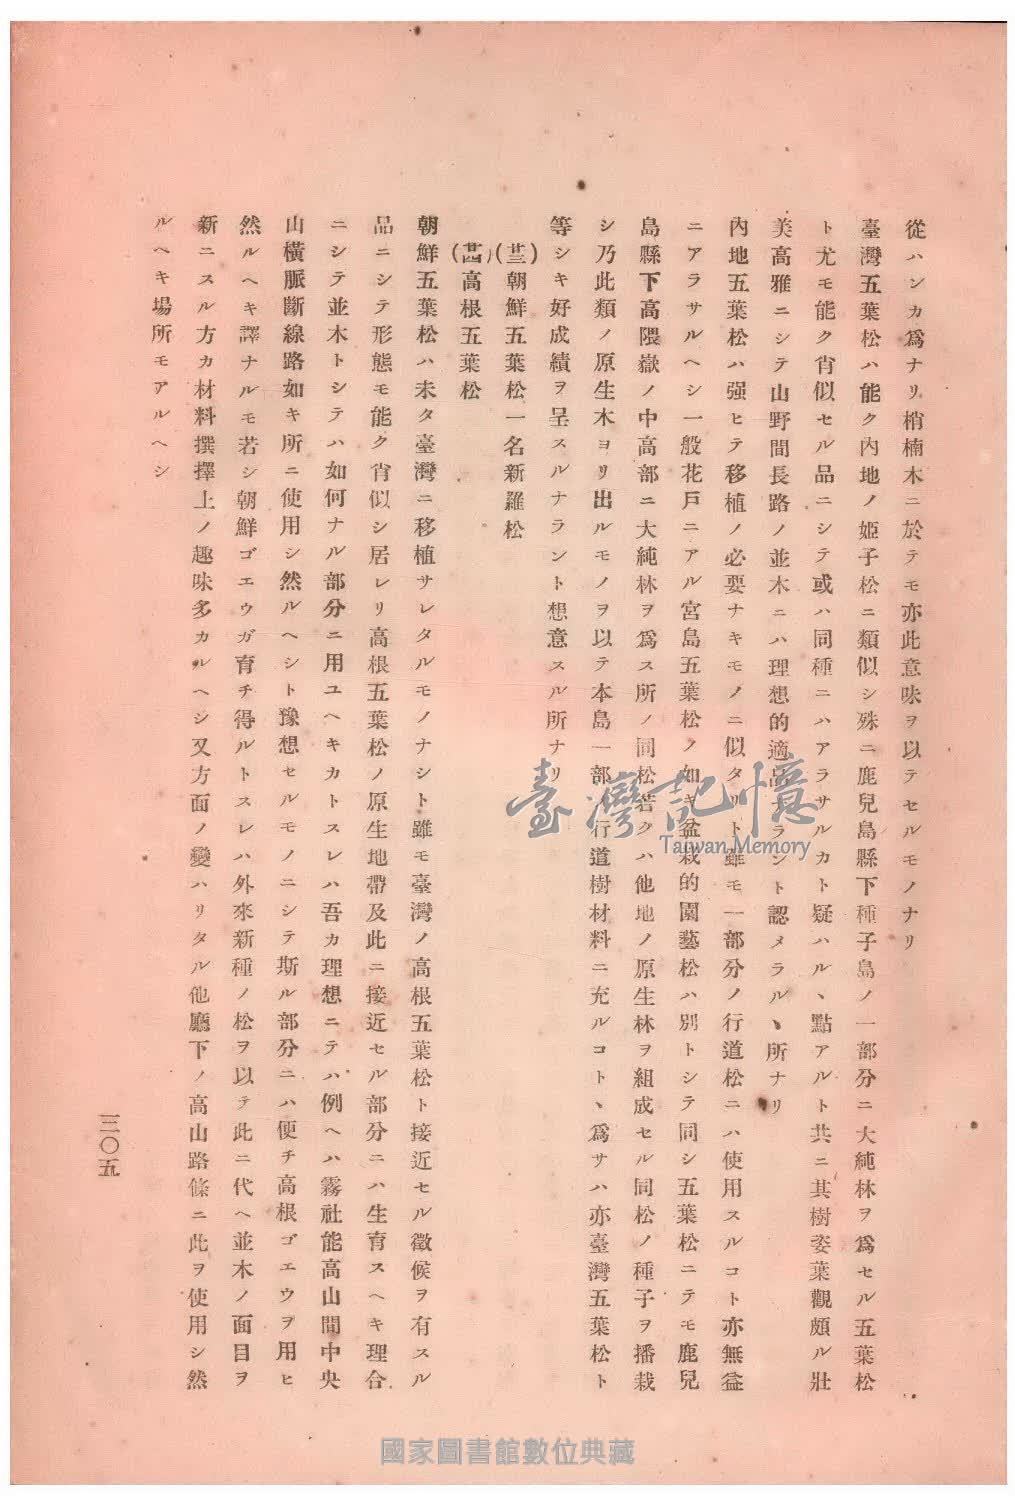 從ハンカ爲ナリ梢楠木ニ於テモ亦此意味ヲ以テセルモノナリ
臺灣五葉松ハ能ク內地ノ姫子松ニ類似シ殊ニ鹿兒島縣下種子島ノ一部分ニ大純林ヲ爲セル五葉松
ト尤モ能ク肖似セル品ニシテ或ハ同種ニハアラサルカト疑ハルヽ點アルト共ニ其樹姿葉觀頗ル壯
美高雅ニシテ山野間長路ノ並木ニハ理想的適品ナラント認メラルヽ所ナリ
內地五葉松ハ强ヒテ移植ノ必要ナキモノニ似タリト雖モ一部分ノ行道松ニハ使用スルコト亦無益
ニアラサルヘシ一般花戶ニアル宮島五葉松ノ如キ盆栽的園藝松ハ別トシテ同シ五葉松ニテモ鹿兒
島縣下高隈嶽ノ中高部ニ大純林ヲ爲ス所ノ同松若クハ他地ノ原生林ヲ組成セル同松ノ種子ヲ播栽
シ乃此類ノ原生木ヨリ出ルモノヲ以テ本島一部ノ行道樹材料ニ充ルコトヽ爲サハ亦臺灣五葉松ト
等シキ好成績ヲ呈スルナラント想意スル所ナリ
(廿三)朝鮮五葉松一名新羅松
(廿四)高根五葉松
朝鮮五葉松ハ未タ臺灣ニ移植サレタルモノナシト雖モ臺灣ノ高根五葉松ト接近セル徵候ヲ有スル
品ニシテ形態モ能ク肖似シ居レリ高根五葉松ノ原生地帶及此ニ接近セル部分ニハ生育スヘキ理合
ニシテ並木トシテハ如何ナル部分ニ用ユヘキカトスレハ吾カ理想ニテハ例ヘハ霧社能高山間中央
山橫脈斷線路如キ所ニ使用シ然ルヘシト豫想セルモノニシテ斯ル部分ニハ便チ高根ゴエウヲ用ヒ
然ルヘキ譯ナルモ若シ朝鮮ゴエウガ育チ得ルトスレハ外來新種ノ松ヲ以テ此ニ代ヘ並木ノ面目ヲ
新ニスル方カ材料撰擇上ノ趣味多カルヘシ又方面ノ變ハリタル他廳下ノ高山路條ニ此ヲ使用シ然
ルヘキ場所モアルヘシ
三〇五
臺灣記憶
Taiwan Memory
國家圖書館數位典藏